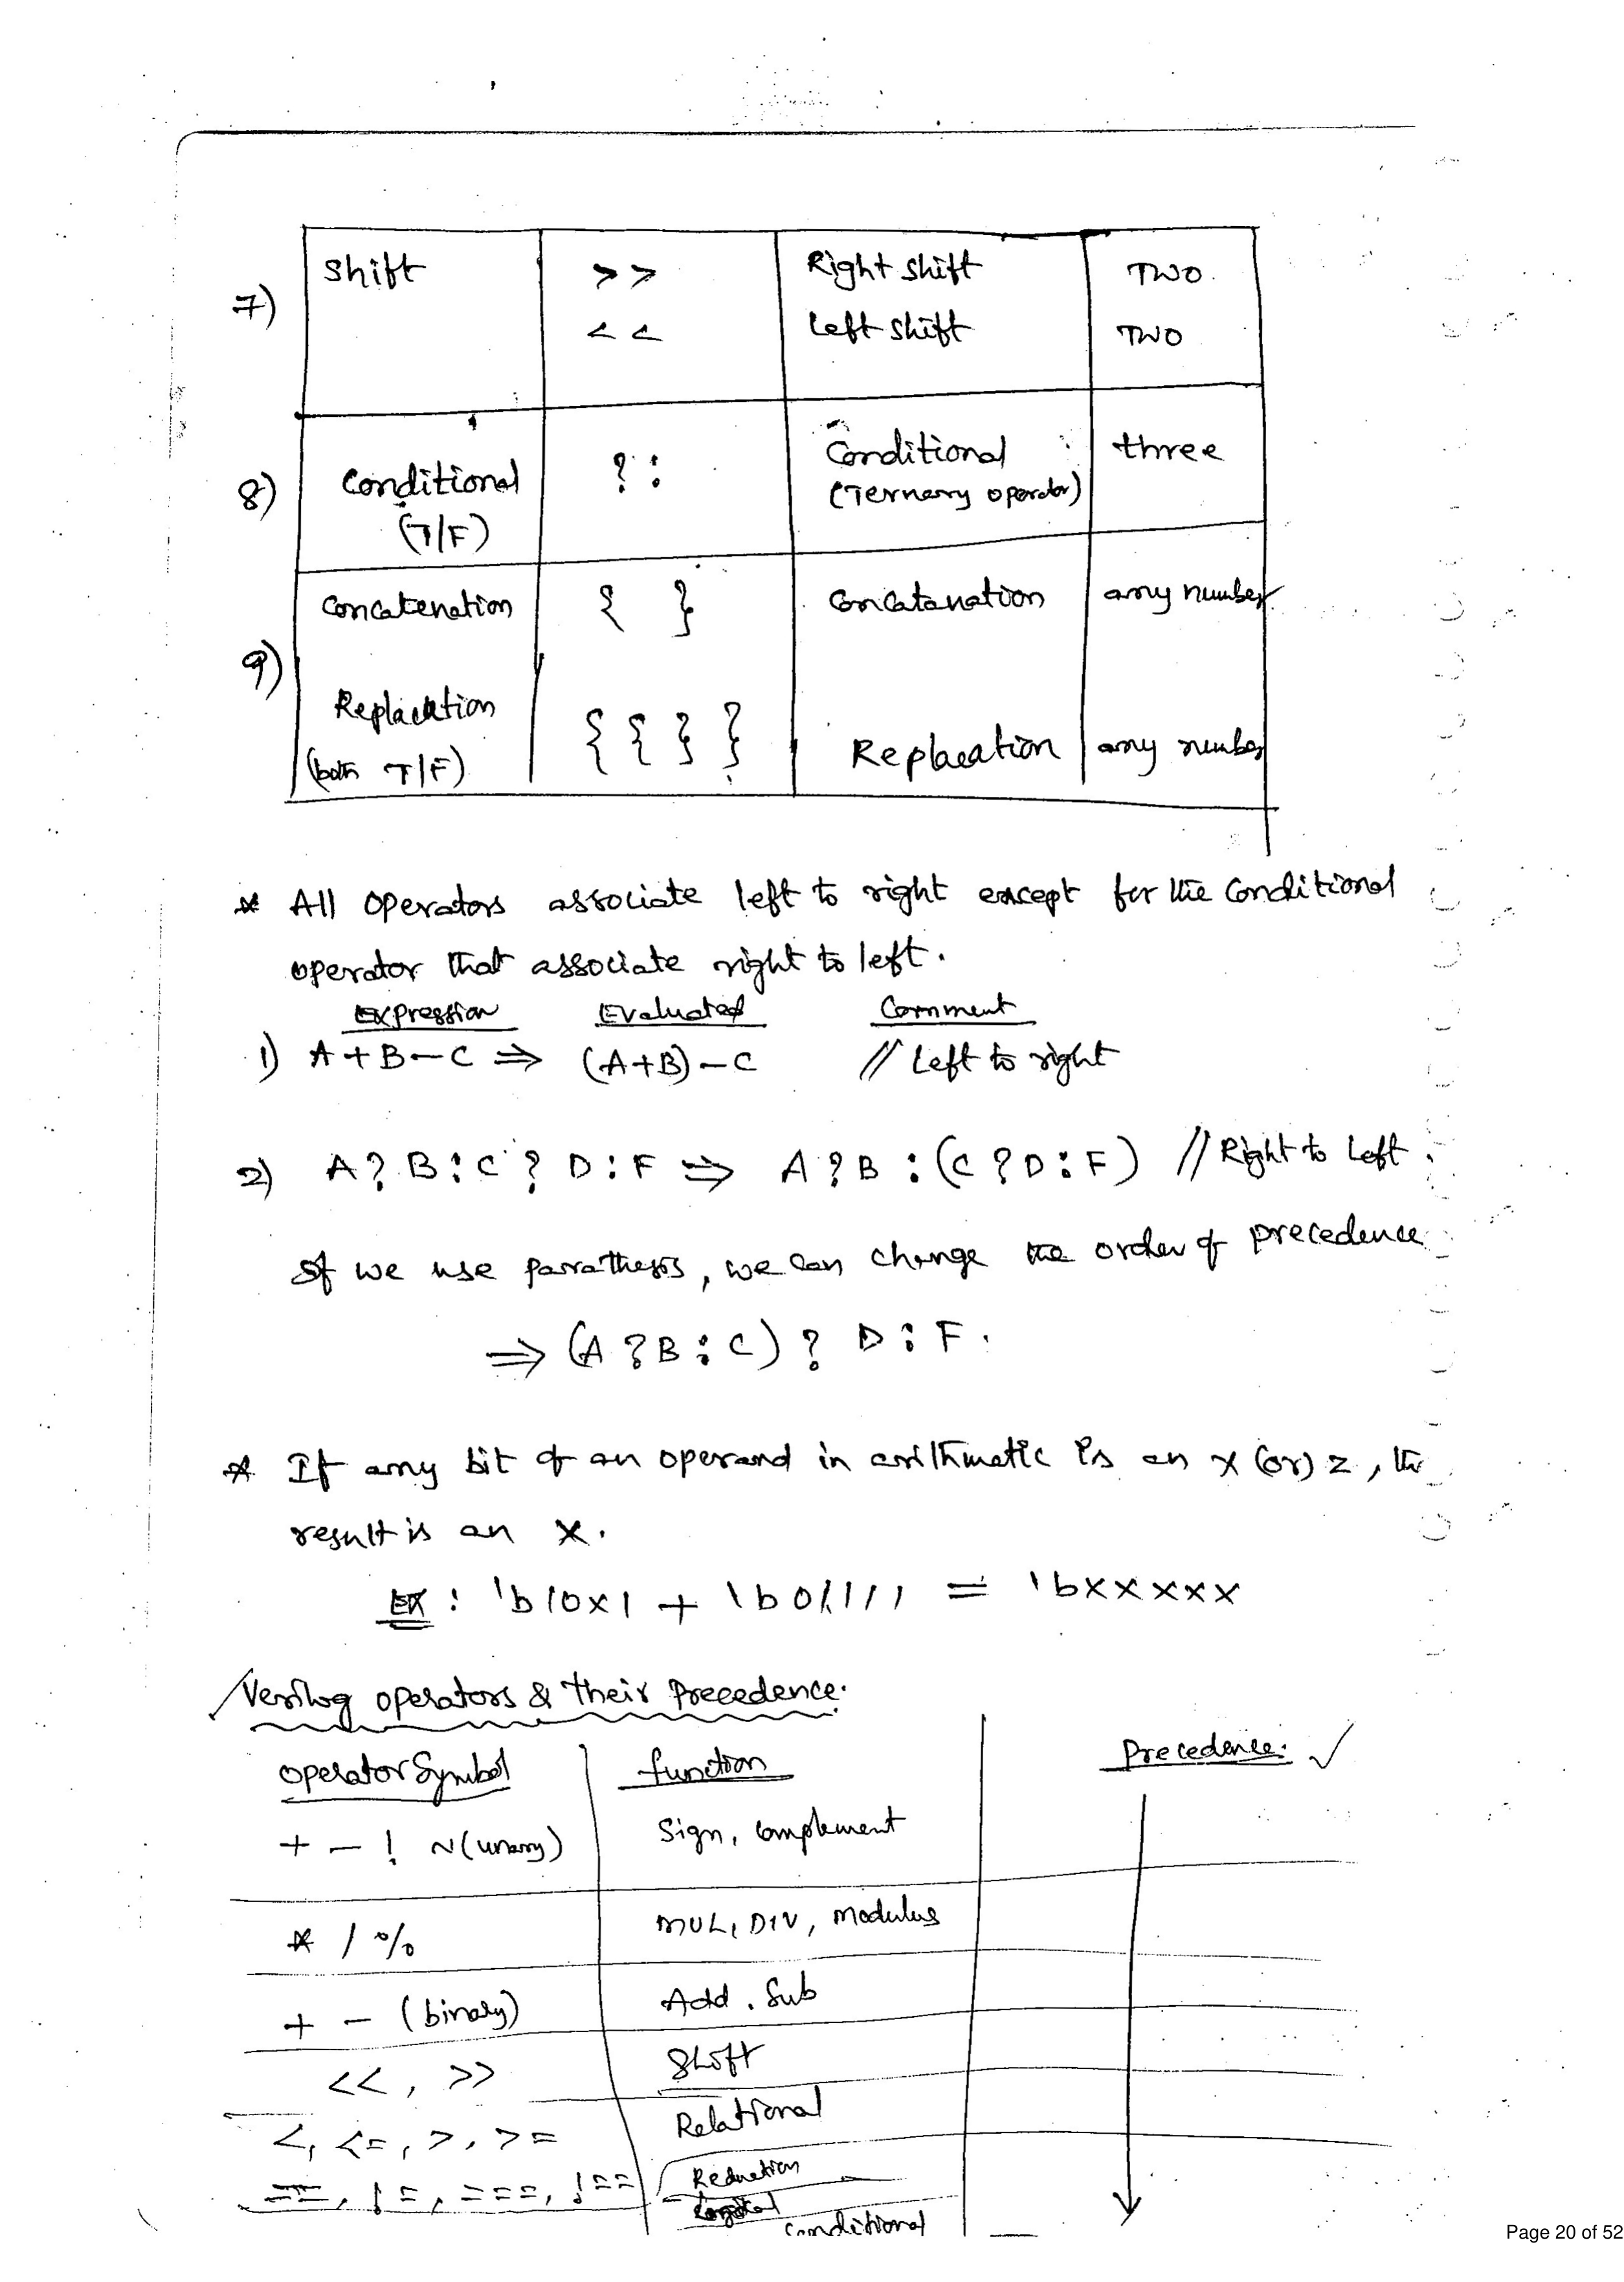 7) Shift >> Right shift TWO.
<< Left shift TWO
8) Conditional (T/F) ? : Conditional (Ternary operator) three
9) Concatenation { } Concatanation any number
Replacation (both T/F) { { } } Replacation any number
* All operators associate left to right except for the Conditional
operator that associate right to left.
Expression Evaluated Comment
1) A+B-C ⇒ (A+B)-C // Left to right
2) A?B:C?D:F ⇒ A?B:(C?D:F) // Right to Left.
If we use parathesis, we can change the order of precedence
⇒ (A?B:C)? D:F.
* If any bit of an operand in arithmatic is an x (or) z, the
result is an x.
Ex: 'b10x1 + 'b01111 = 'bxxxxx
Verilog operators & their Precedence.
operator Symbol function Precedence. ✓
+ - ! ~(unary) Sign, complement
* / % MUL, DIV, Modulus
+ - (binary) Add, Sub
<<, >> Shift
<, <=, >, >= Relational
==, !=, ===, !== Reduction
Logical
Conditional
Page 20 of 52